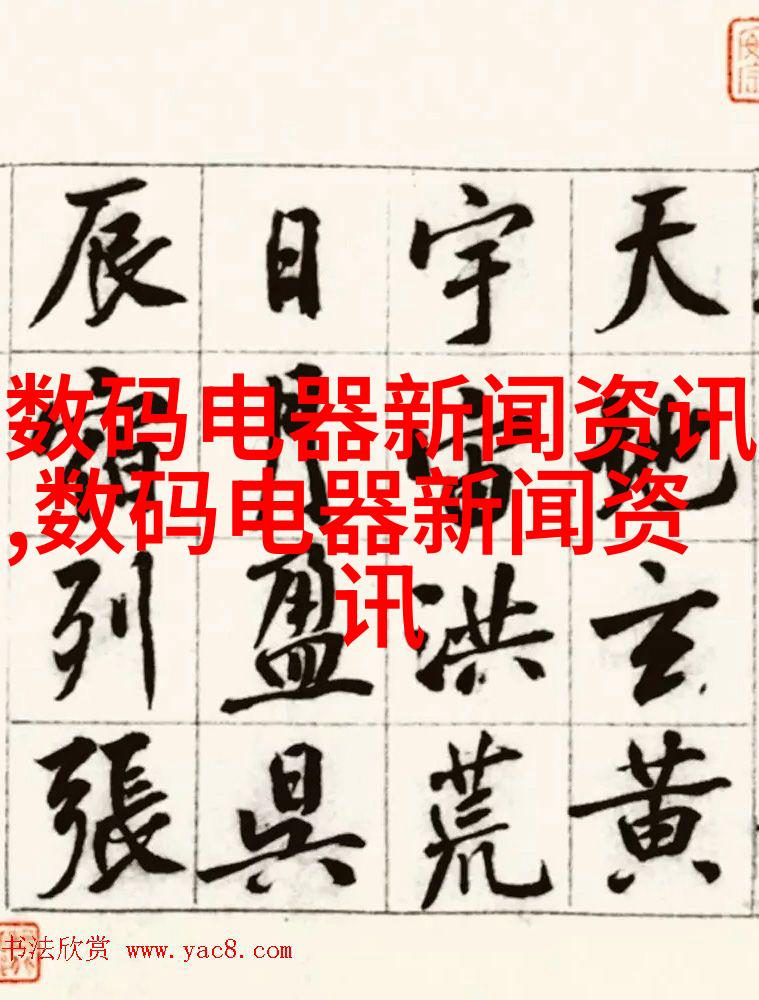 天地玄黄
宇宙洪荒
日月盈昃
辰宿列張
数码电器新闻资讯
,数码电器新闻资
讯
书法欣赏 www.yac8.com